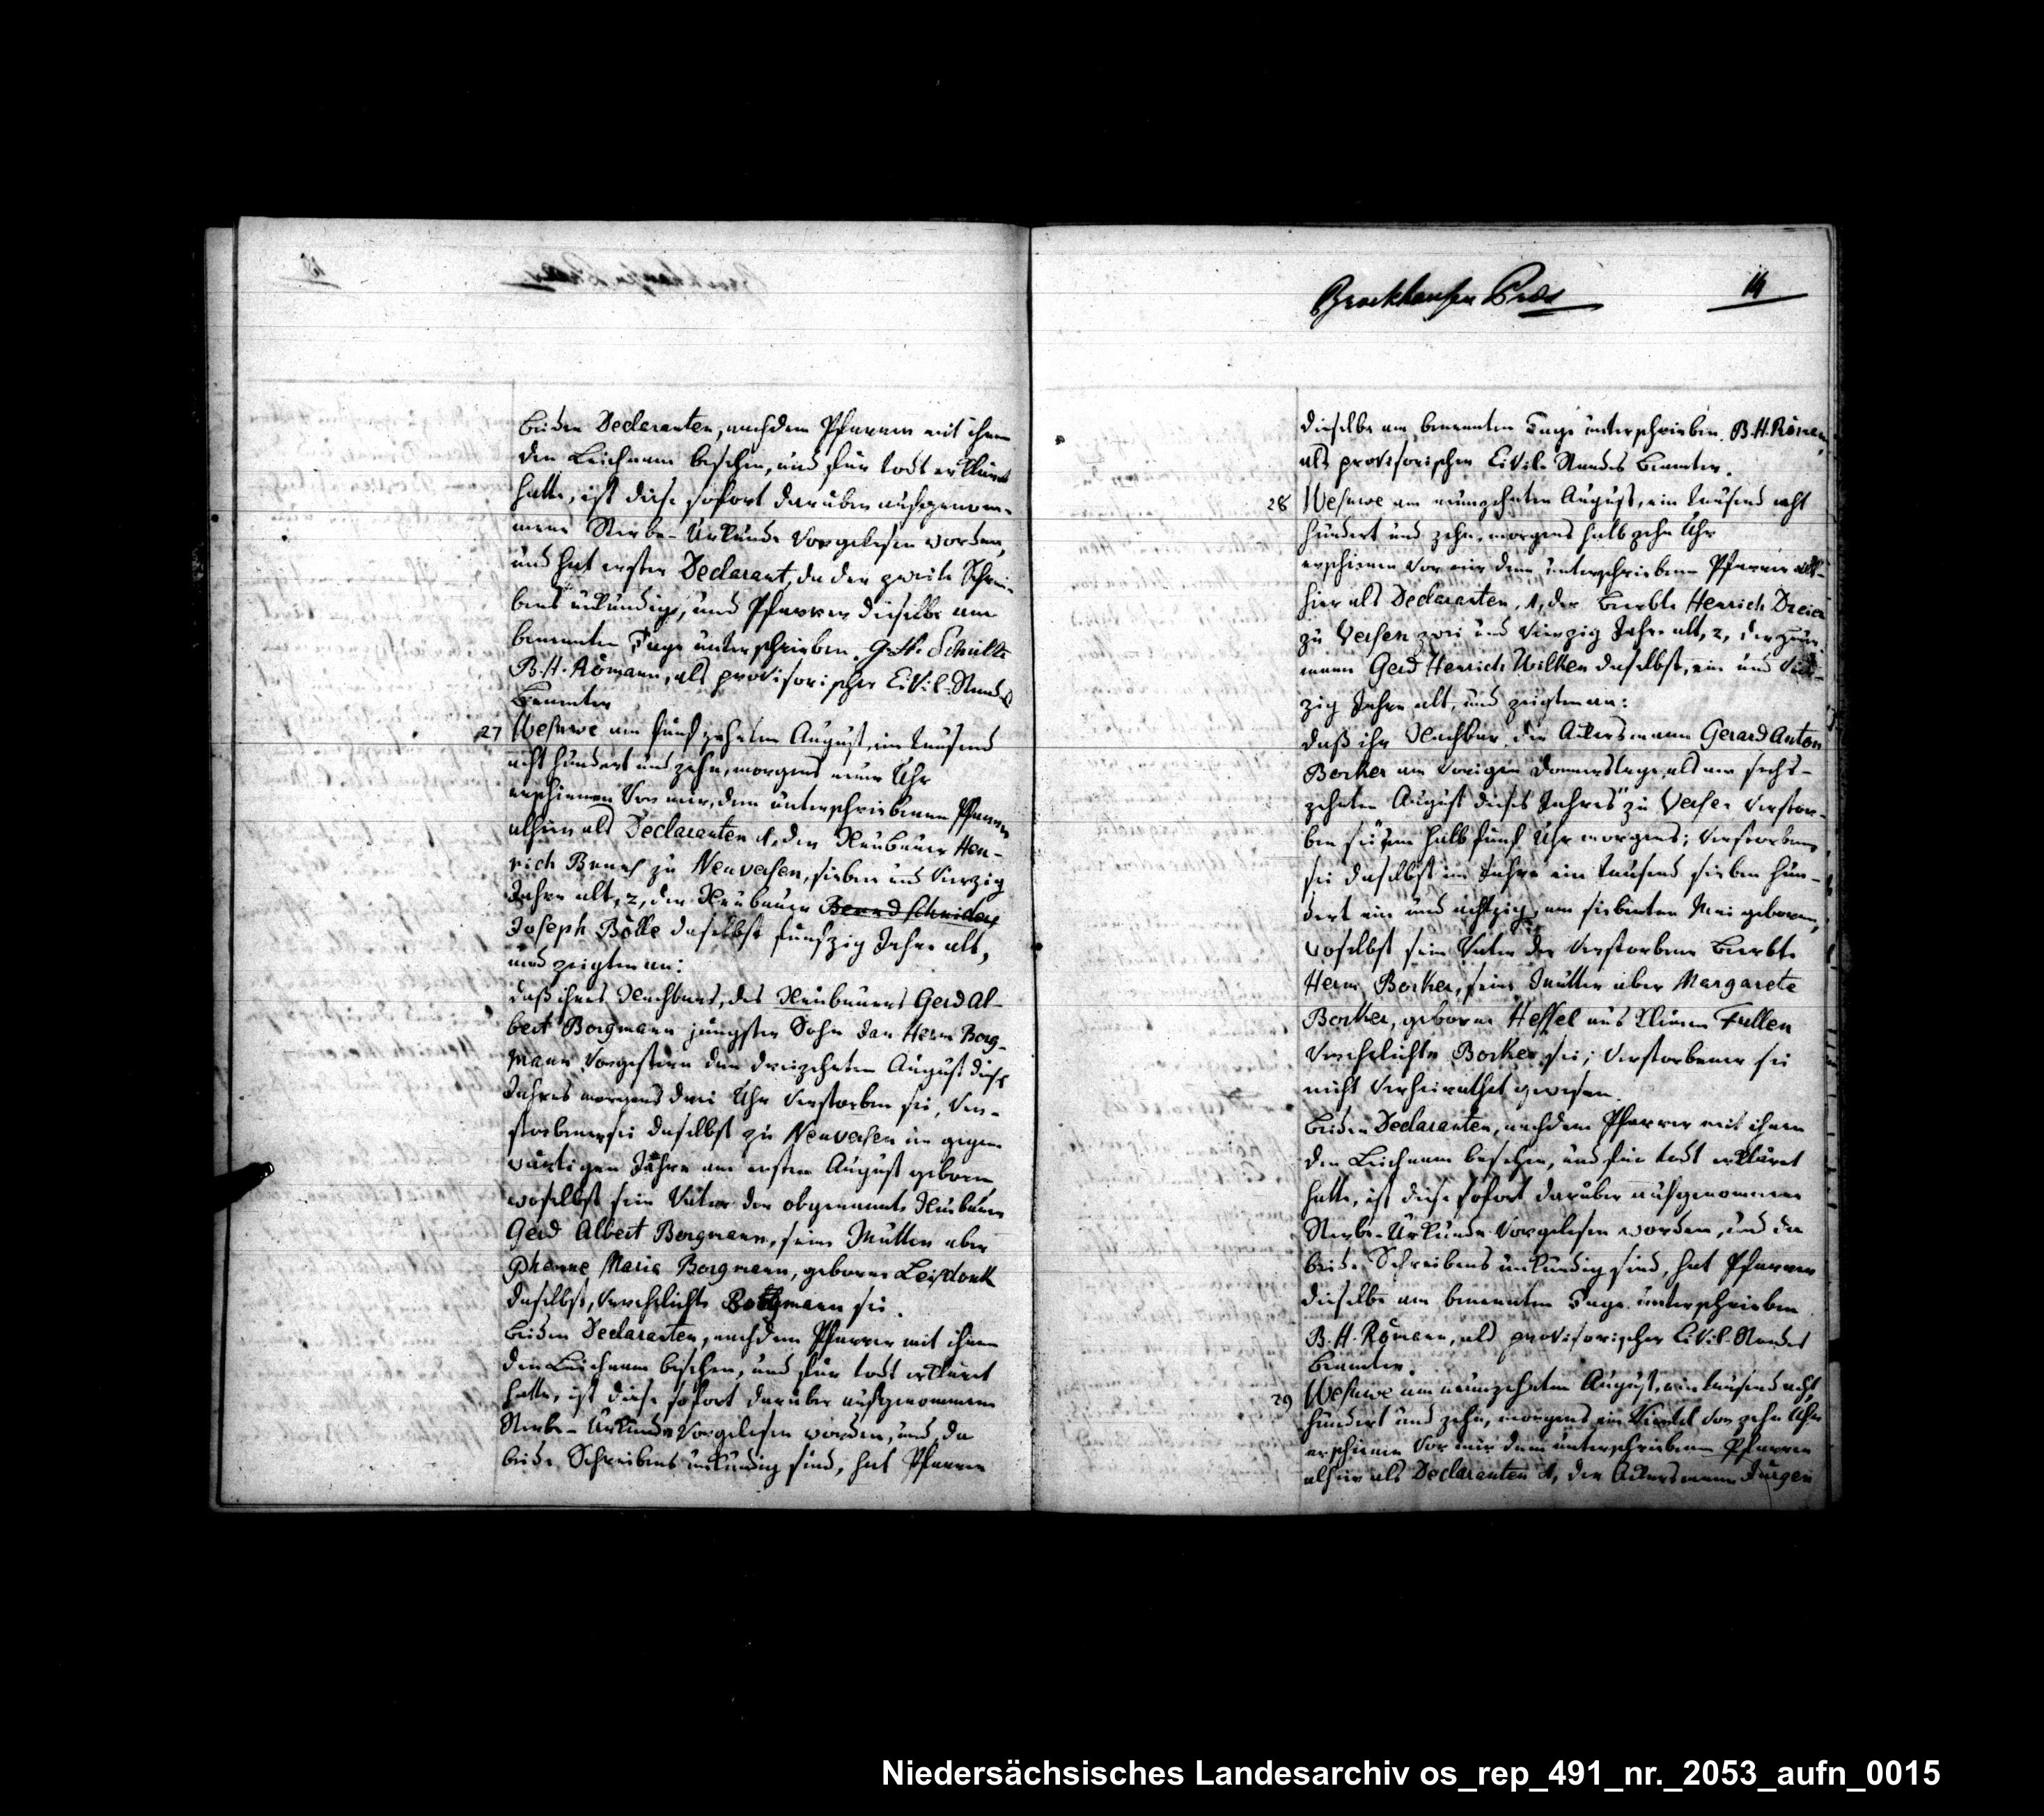 Brockhausen Präs
14
beiden Declaranten, nachdem Pfarrer mit ihnen
den Leichnam besehen, und für todt erkläret
hatte, ist diese sofort darüber aufgenom-
mene Sterbe-Urkunde vorgelesen worden,
und hat erster Declarant, da der zweite Schrei-
bens unkundig, und Pfarrer dieselbe am
benennten Tage unterschrieben. G. H. Schulte
B. H. Römann, als provisorischer Civil-Standes
Beamter
27 Wesuwe am fünfzehnten August, ein tausend
acht hundert und zehn, morgens neun Uhr
erschienen vor mir, dem unterschriebenen Pfarrer
alhier als Declaranten 1, der Neubauer Hen-
rich Bruns zu Neuversen, sieben und vierzig
Jahre alt, 2, der Neubauer Bernd Schniders
Joseph Bölle daselbst fünfzig Jahre alt,
und zeigten an:
daß ihres Nachbars, des Neubauers Gerd Al-
bert Borgmann jüngster Sohn Jan Herm Borg-
mann vorgestern den dreizehnten August dieses
Jahres morgens drei Uhr verstorben sei, Ver-
storbener sei daselbst zu Neuversen im gegen
wärtigen Jahre am ersten August geboren,
woselbst sein Vater der obgenannte Neubauer
Gerd Albert Borgmann, seine Mutter aber
Maria Borgmann, geborne Leisdonk
daselbst, verehelichte Borgmann sei.
Beiden Declaranten, nachdem Pfarrer mit ihnen
den Leichnam besehen, und für todt erkläret
hatte, ist diese sofort darüber aufgenommene
Sterbe-Urkunde vorgelesen worden, und da
beide Schreibens unkundig sind, hat Pfarrer
dieselbe am benennten Tage unterschrieben. B. H. Römann,
als provisorischer Civil-Standes Beamter.
28 Wesuwe am neunzehnten August, ein tausend acht
hundert und zehn, morgens halb zehn Uhr
erschienen vor mir dem unterschriebenen Pfarrer all-
hier als Declaranten, 1, der Beerbte Henrich Dreier
zu Versen zwei und vierzig Jahre alt, 2, der
mann Gerd Henrich Wilken daselbst, ein und vier-
zig Jahre alt, und zeigten an:
daß ihr Nachbar der Ackersmann Gerard Anton
Borker am vorigen Donnerstage als am sechs-
zehnten August dieses Jahres zu Versen verstor-
ben sei, um halb fünf Uhr morgens; Verstorbener
sei daselbst im Jahre ein tausend sieben hun-
dert ein und achtzig, am siebenten Mai geboren,
woselbst sein Vater der verstorbene Beerbte
Herm Borker, seine Mutter aber Margareta
Borker, geborne Hessel aus Kleinen Fullen
verehelichte Borker sei; Verstorbener sei
nicht verheirathet gewesen.
Beiden Declaranten, nachdem Pfarrer mit ihnen
den Leichnam besehen, und für todt erkläret
hatte, ist diese sofort darüber aufgenommene
Sterbe-Urkunde vorgelesen worden, und da
beide Schreibens unkundig sind, hat Pfarrer
dieselbe am benennten Tage unterschrieben
B. H. Römann, als provisorischer Civil-Standes
Beamter.
29 Wesuwe am neunzehnten August, ein tausend acht
hundert und zehn, morgens ein Viertel vor zehn Uhr
erschienen vor mir dem unterschriebenen Pfarrer
alhier als Declaranten 1, der Ackersmann Jürgen
Niedersächsisches Landesarchiv os_rep_491_nr._2053_aufn_0015